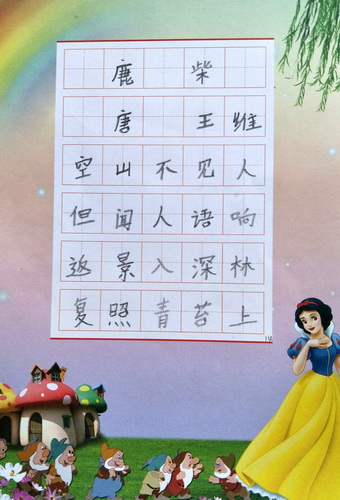 鹿柴
唐 王维
空山不见人
但闻人语响
返景入深林
复照青苔上